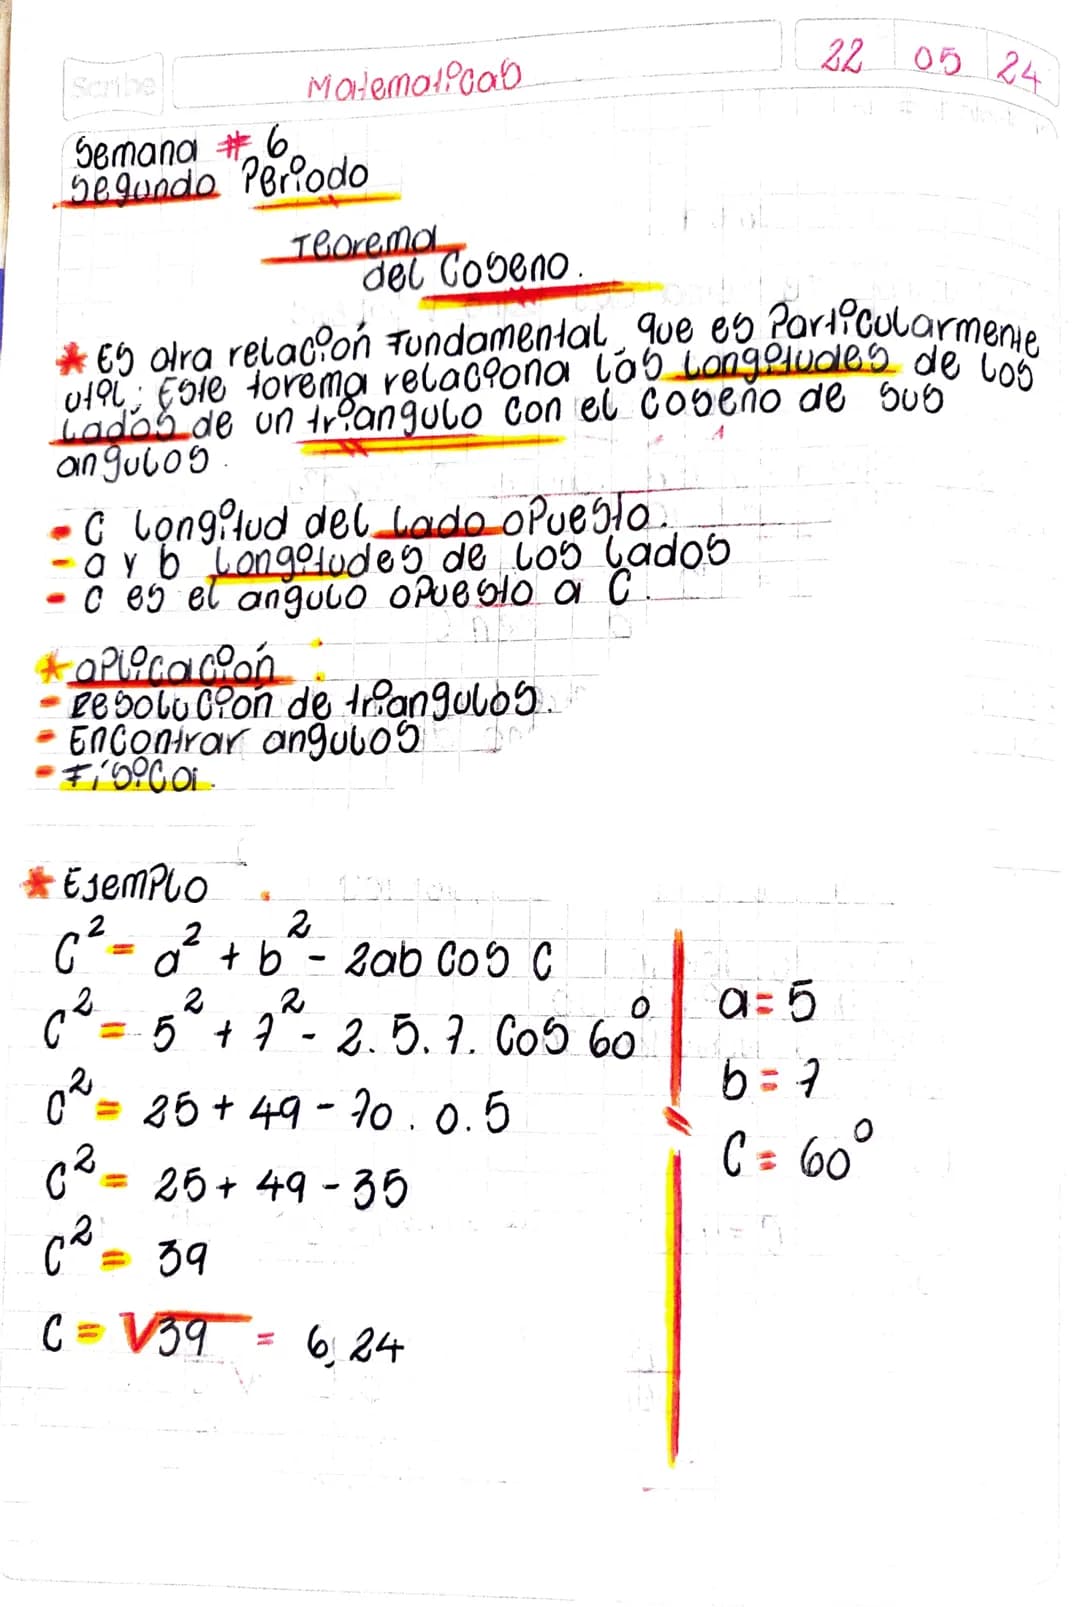 Scribe
Matematicas
22 05 24
Semana # 6
Segundo Periodo
Teorema
del Coseno.
* Es otra relación Fundamental que es Particularmente
util; Este torema relaciona las Longitudes de los
Lados de un triangulo con el coseno de sus
angulos.
- C Longitud del Lado oPuesto.
- a y b Longitudes de los lados
- C es el angulo oPuesto a C.
* aPlicación :
- Resolución de triangulos.
- Encontrar angulos
- Física.
* EJemPlo .
C² = a² + b² - 2ab Cos C
C² = 5² + 7² - 2.5.7. Cos 60°
C² = 25 + 49 - 70 . 0.5
C² = 25 + 49 - 35
C² = 39
C = √39 = 6,24
a = 5
b = 7
C = 60°